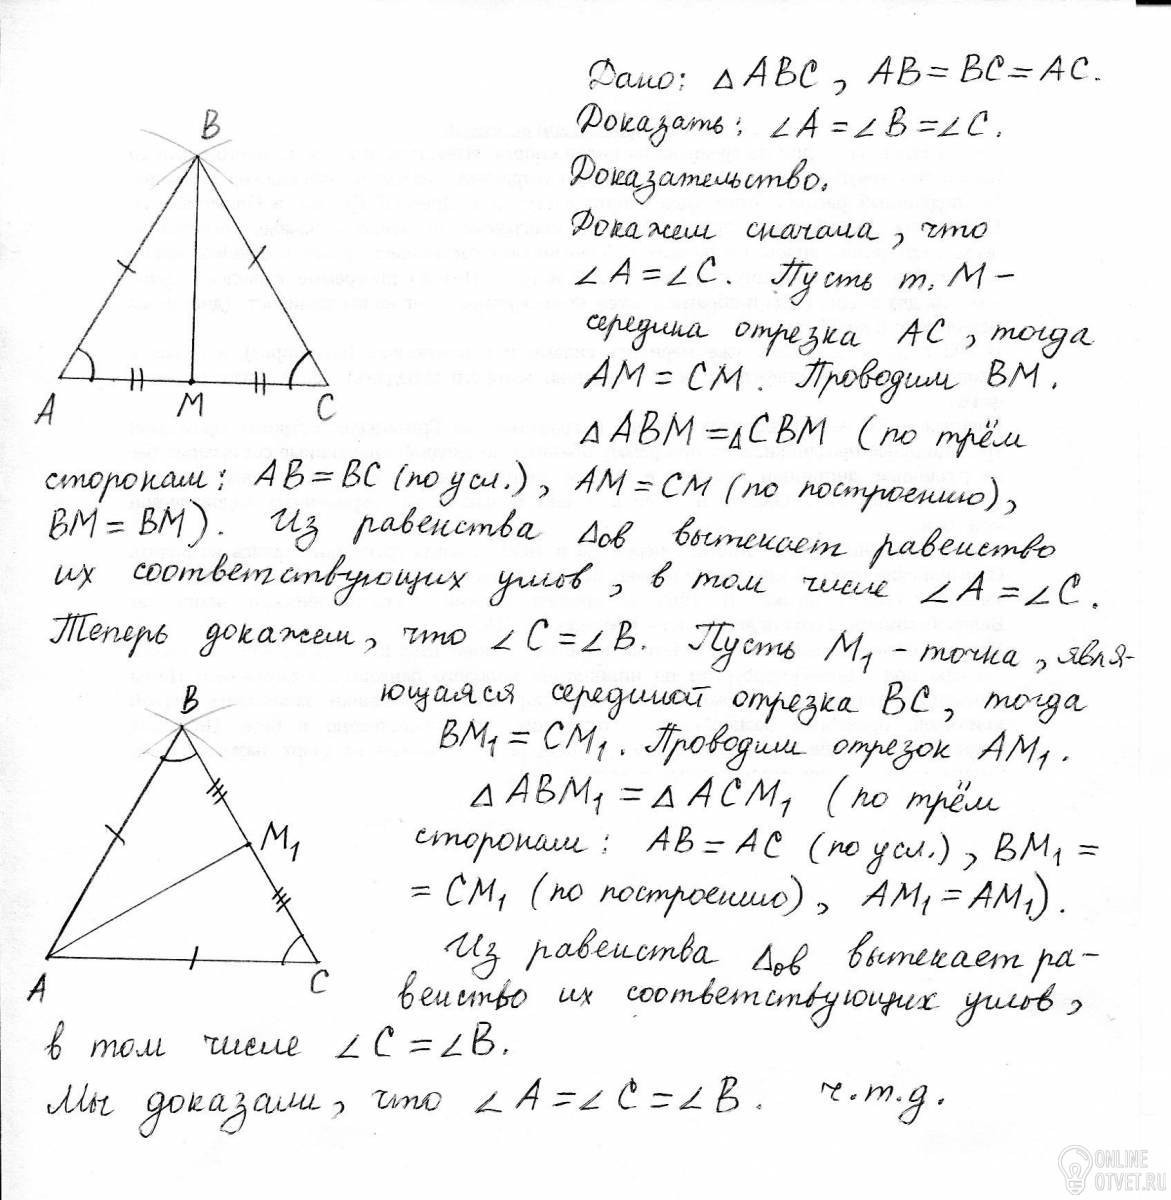 Дано: △ABC, AB = BC = AC.
Доказать: ∠A = ∠B = ∠C.
Доказательство.
Докажем сначала, что
∠A = ∠C. Пусть т. M -
середина отрезка AC, тогда
AM = CM. Проводим BM.
△ABM = △CBM (по трём
сторонам: AB = BC (по усл.), AM = CM (по построению),
BM = BM). Из равенства △ов вытекает равенство
их соответствующих углов, в том числе ∠A = ∠C.
Теперь докажем, что ∠C = ∠B. Пусть M₁ - точка, явля-
ющаяся серединой отрезка BC, тогда
BM₁ = CM₁. Проводим отрезок AM₁.
△ABM₁ = △ACM₁ (по трём
сторонам: AB = AC (по усл.), BM₁ =
= CM₁ (по построению), AM₁ = AM₁).
Из равенства △ов вытекает ра-
венство их соответствующих углов,
в том числе ∠C = ∠B.
Мы доказали, что ∠A = ∠C = ∠B. ч.т.д.
B
A
M
C
B
M₁
A
C
ONLINE
OTVET.RU